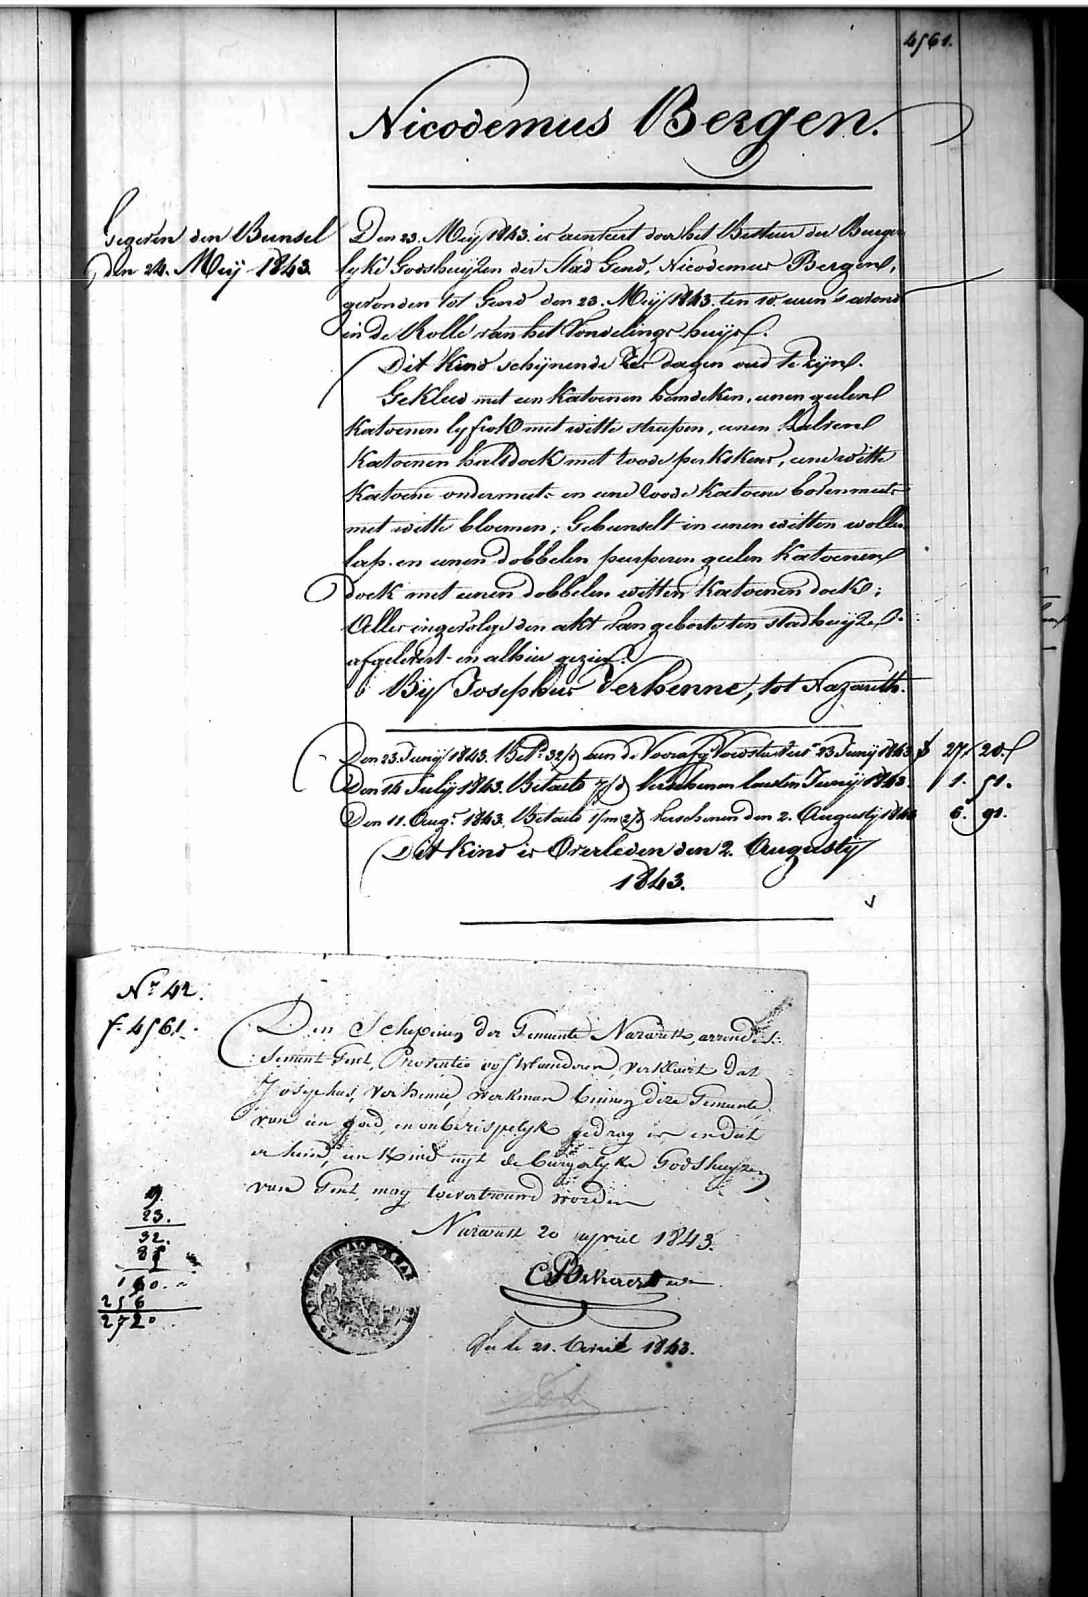 4561.
Nicodemus Bergen.
Gegeven den Bunsel
den 24. Meij 1843.
Den 23. Meij 1843. is aenveert door het Bestuer der Burger
lyke Godshuijzen der Stad Gend, Nicodemus Bergen,
gevonden tot Gend den 23. Meij 1843. ten 10. uren 's avonds
in de Rolle van het Vondelings huijs.
Dit Kind schijnende dagen oud te zijn.
Gekleed met een Katoenen hemdeken, eenen geelen
Katoenen lyfrok met witte streepen, eenen
Katoenen halsdoek met roode perkskens, eene witte
Katoene ondermuts en eene roode Katoene bovenmuts
met witte bloemen; Gebunselt in eenen witten wollen
lap en eenen dobbelen peirperen geelen Katoenen
doek met eenen dobbelen witten Katoenen doek;
Alles ingevolge den akt van geboorte ten stadhuijze
afgelevert en alhier gezien.
Bij Josephus Verhenne, tot Nazareth.
Den 23. Junij 1843. Bet. 32/d aen de Voedster 23 Junij 1843 27. 20.
Den 14 Julij 1843. Betaelt 7/d verschenen lausten Junij 1843. 1. 51.
Den 11. Aug. 1843. Betaelt 1/m 2/d verschenen den 2. Augustij 1843 6. 91.
Dit kind is Overleden den 2. Augustij
1843.
N. 42.
f. 4561.
Den Schepenen der Gemeente Nazareth, arrondis-
sement Gent, Proventie oostvlaenderen, verklaert dat
Josephus Verhenne, werkman binnen deze Gemeente,
van een goed, en onberispelijk gedrag is en dat
er hem een Kind uyt de burgerlyke Godshuyzen
van Gent, mag toevertrouwd worden
Nazareth 20 april 1843.
9
23.
32.
85
160.
256
2720
Vu le 21. avril 1843.